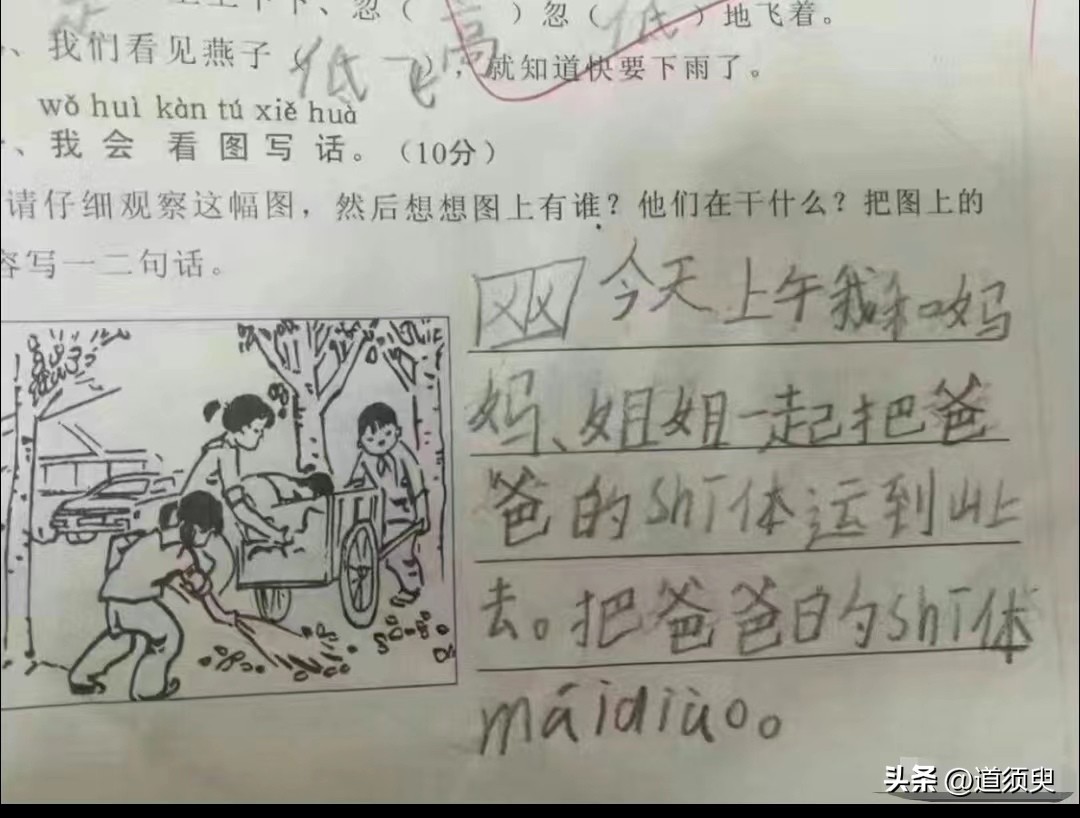 忽（高）忽（低）地飞着。
、我们看见燕子（低飞），就知道快要下雨了。
wǒ huì kàn tú xiě huà
、我会看图写话。（10分）
请仔细观察这幅图，然后想想图上有谁？他们在干什么？把图上的
容写一二句话。
今天上午我和妈
妈、姐姐一起把爸
爸的ShT体运到山上
去。把爸爸的ShT体
máidiào。
头条 @道须臾